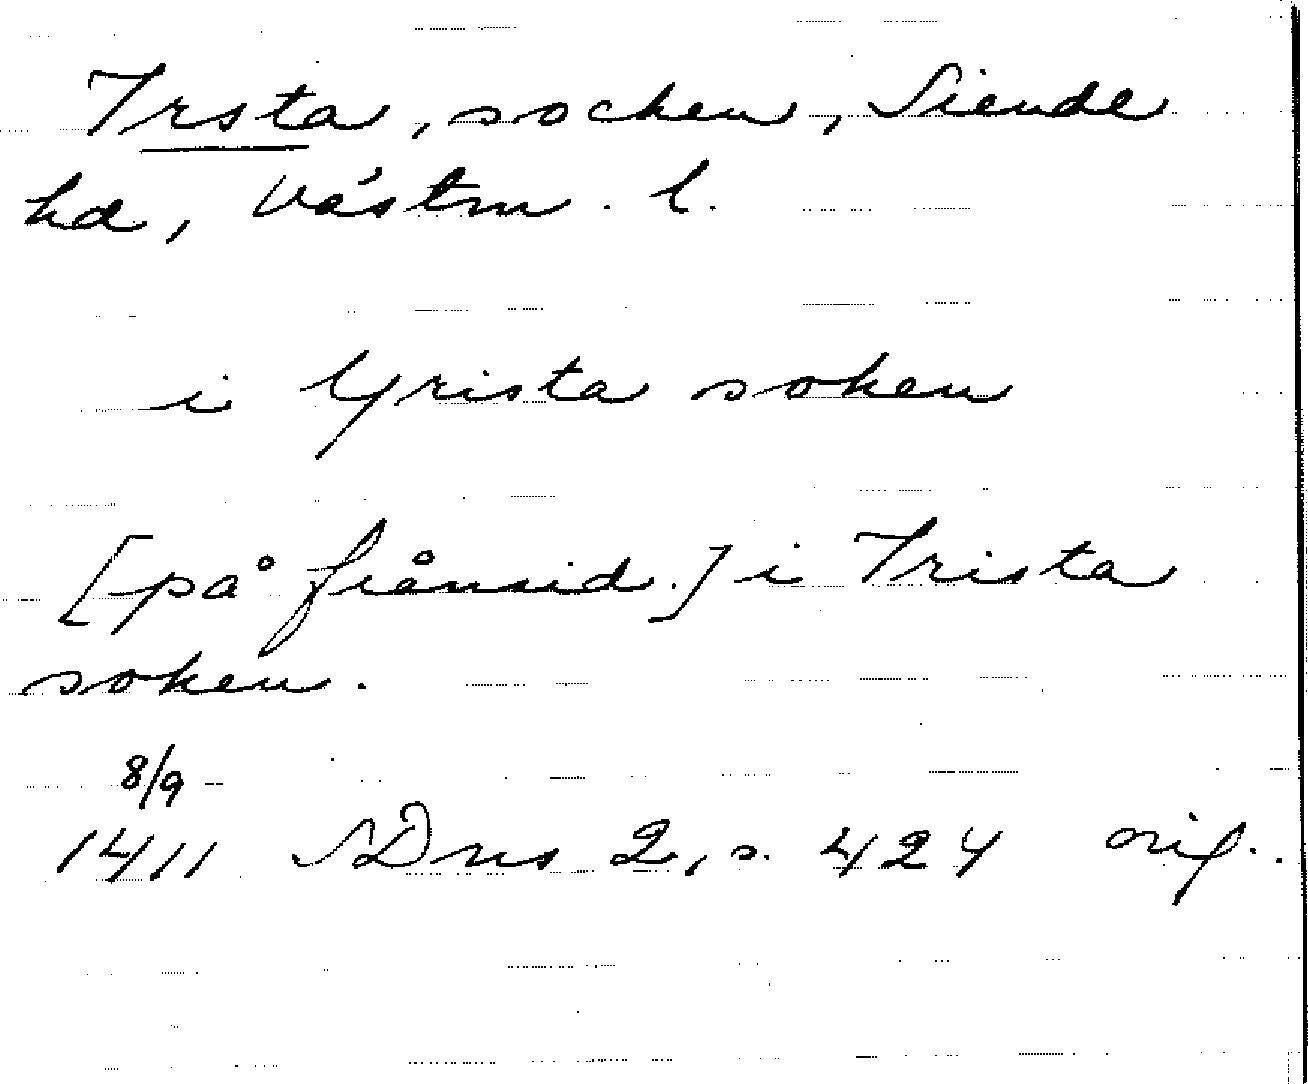 Irsta, socken, Siende
hd, Västm. l.
i Yrista soken
[på frånsid.] i Irista
soken.
8/9
1411 SDns 2, s. 424 orig.